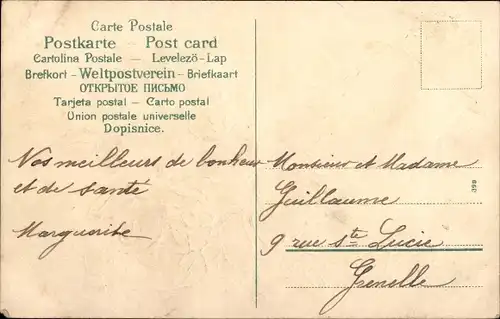 Carte Postale
Postkarte — Post card
Cartolina Postale — Levelezö-Lap
Brefkort - Weltpostverein - Briefkaart
ОТКРЫТОЕ ПИСЬМО
Tarjeta postal — Carto postal
Union postale universelle
Dopisnice.
Vos meilleurs de bonheur
et de santé
Marguerite
Monsieur et Madame
Guillaume
9 rue Ste Lucie
Grenelle
398